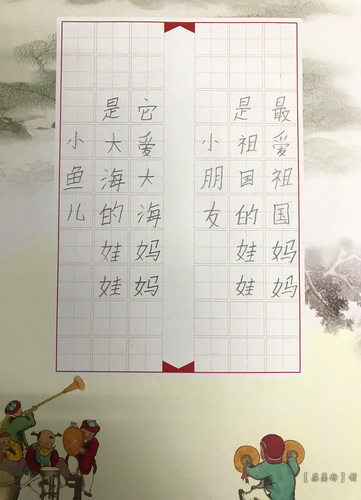 最爱祖国妈妈
是祖国的娃娃
小朋友
它爱大海妈妈
是大海的娃娃
小鱼儿